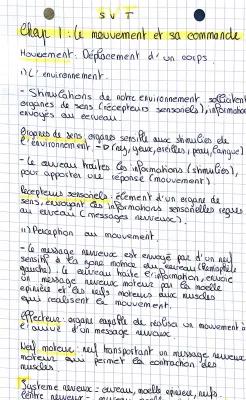 SVT
Chap 1 : Le mouvement et sa commande
Mouvement : Déplacement d'un corps.
I) L'environnement.
- Stimulations de notre environnement sollicitent
organes de sens (récepteurs sensoriels), informations
envoyées au cerveau.
Organes de sens, organes sensible aux stimulies de
l'environnement -> (nez, yeux, oreilles, peau, langue)
- Le cerveau traites les informations (stimulies),
pour apporter une réponse (mouvement)
Récepteurs sensoriels : élément d'un organe de
sens, envoyant les informations sensorielles reçues
au cerveau (messages nerveux).
II) Perception au mouvement
- Le message nerveux est envoyé par d'un nerf
sensitif à la zone motrice du cerveau (hémisphère
gauche). Le cerveau traite l'information, envoie
un message nerveux moteur par la moelle
épinière et les nerfs moteurs aux muscles
qui réalisent le mouvement.
Effecteur : organe capable de réaliser un mouvement à
l'arrivé d'un message nerveux.
Nerf moteur : nerf transportant un message nerveux
moteur qui permet la contraction des
muscles
Système nerveux - cerveau, moelle épinière, nerfs.
Centre nerveux -